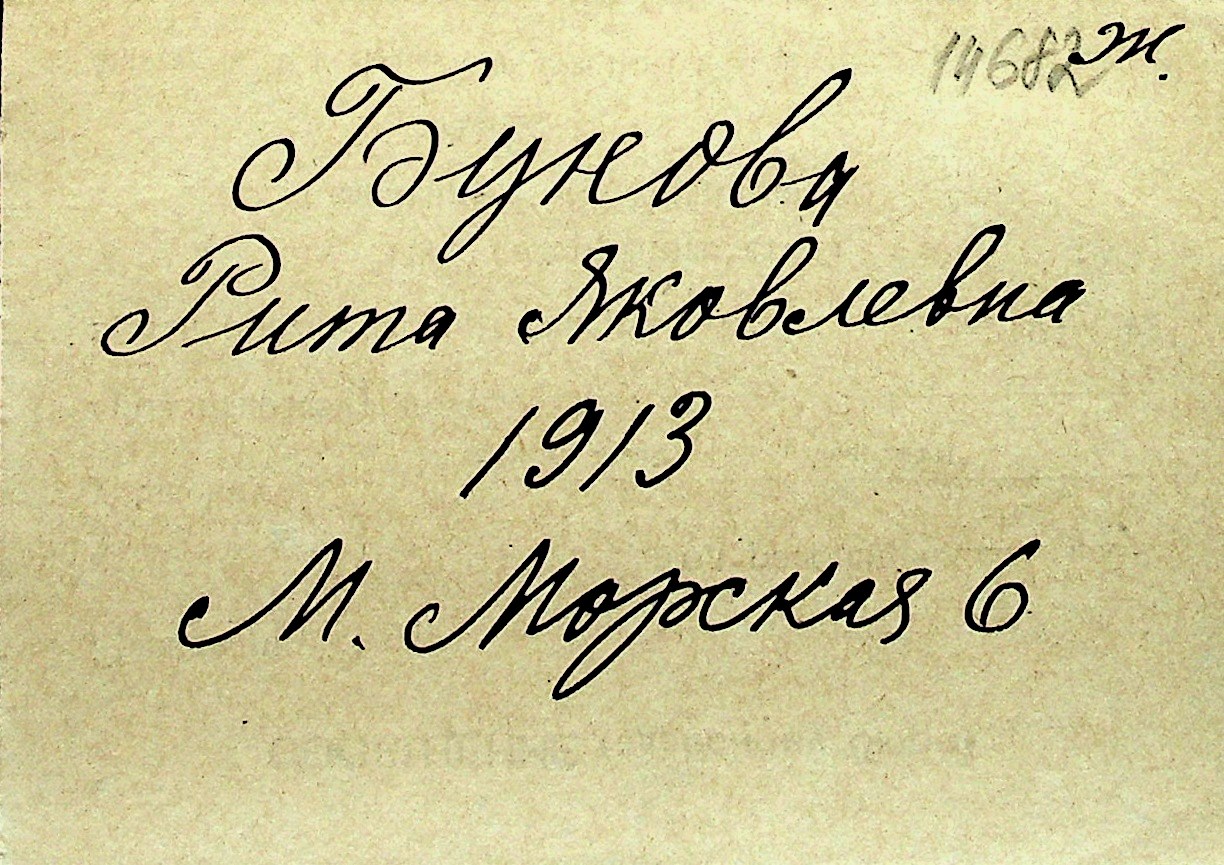 14682 ж.
Букова
Рита Яковлевна
1913
М. Морская 6